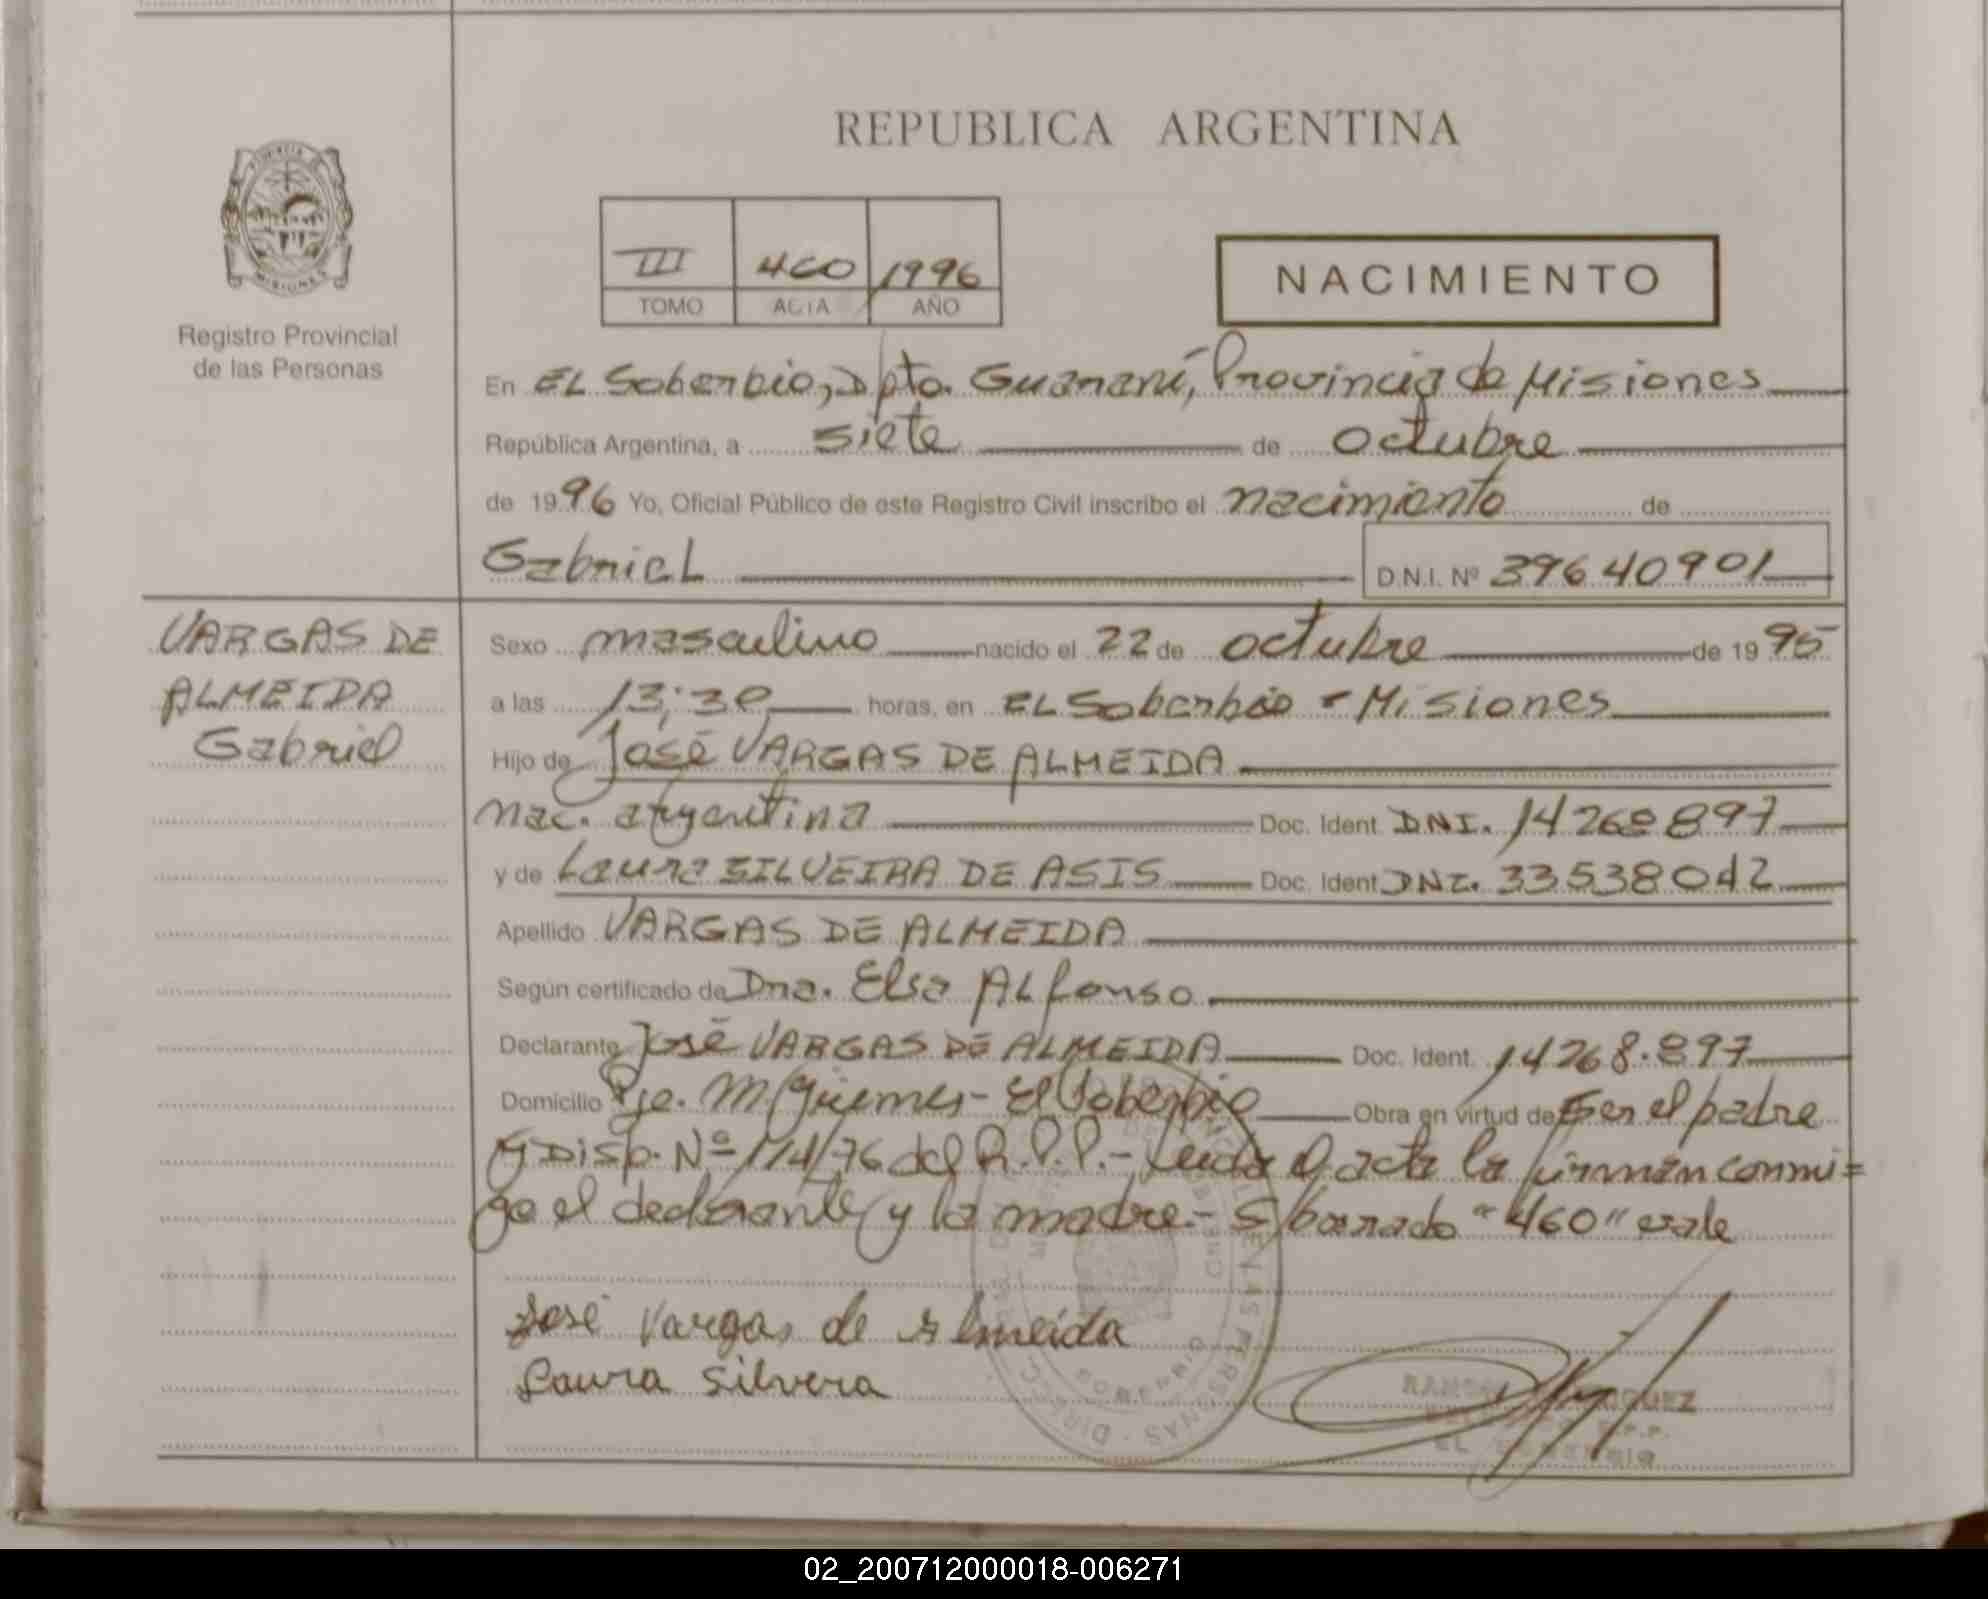 REPUBLICA ARGENTINA
III 460 1996
TOMO ACTA AÑO
NACIMIENTO
Registro Provincial
de las Personas
En EL Soberbio, Dpto. Guaraní, Provincia de Misiones
República Argentina, a siete de octubre
de 1996 Yo, Oficial Público de este Registro Civil inscribo el nacimiento de
Gabriel D.N.I. Nº 39640901
VARGAS DE
ALMEIDA
Gabriel
Sexo masculino nacido el 22 de octubre de 1995
a las 13:30 horas, en EL Soberbio - Misiones
Hijo de José VARGAS DE ALMEIDA
nac. argentina Doc. Ident. DNI. 14268897
y de Laura SILVEIRA DE ASIS Doc. Ident DNI. 33538042
Apellido VARGAS DE ALMEIDA
Según certificado de Dna. Elsa ALfonso
Declarante José VARGAS DE ALMEIDA Doc. Ident. 14268.897
Domicilio Pje. M. Güemes - El Soberbio Obra en virtud de Ser el padre
y Disp. Nº 114/76 del R.P.P. - Leida el acta la firman conmi=
go el declarante y la madre.- S/barrado "460" vale
José Vargas de Almeida
Laura Silvera
EL SOBERBIO
02_200712000018-006271